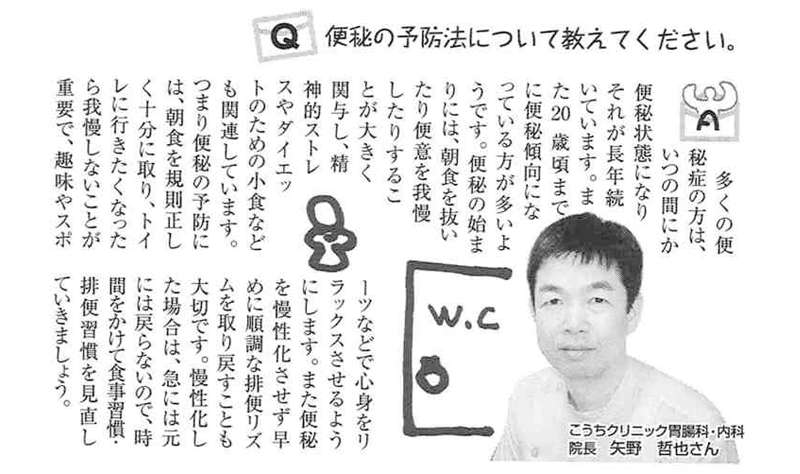 Q
便秘の予防法について教えてください。
A
多くの便
秘症の方は、
いつの間にか
便秘状態になり
それが長年続
いています。ま
た20歳頃まで
に便秘傾向にな
っている方が多いよ
うです。便秘の始ま
りには、朝食を抜い
たり便意を我慢
したりするこ
とが大きく
関与し、精
神的ストレ
スやダイエッ
トのための小食など
も関連しています。
つまり便秘の予防に
は、朝食を規則正し
く十分に取り、トイ
レに行きたくなった
ら我慢しないことが
重要で、趣味やスポ
ーツなどで心身をリ
ラックスさせるよう
にします。また便秘
を慢性化させず早
めに順調な排便リズ
ムを取り戻すことも
大切です。慢性化し
た場合は、急には元
には戻らないので、時
間をかけて食事習慣・
排便習慣を見直し
ていきましょう。
W.C
こうちクリニック胃腸科・内科
院長 矢野 哲也さん